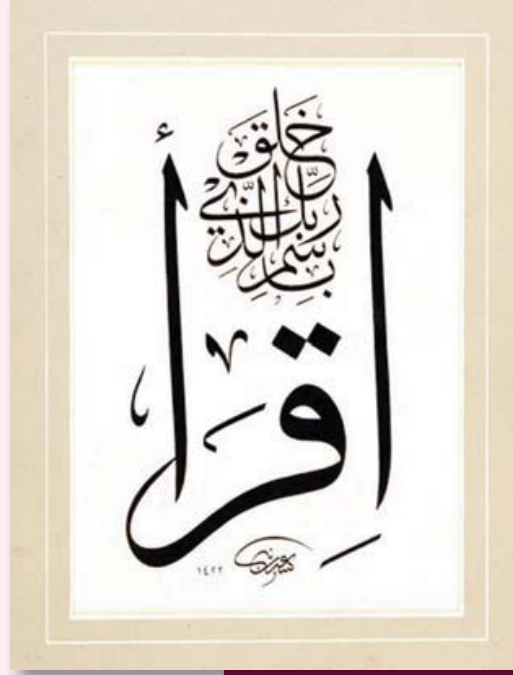 اِقْرَأْ
بِاسْمِ
رَبِّكَ الَّذِي
خَلَقَ
١٤٢٢